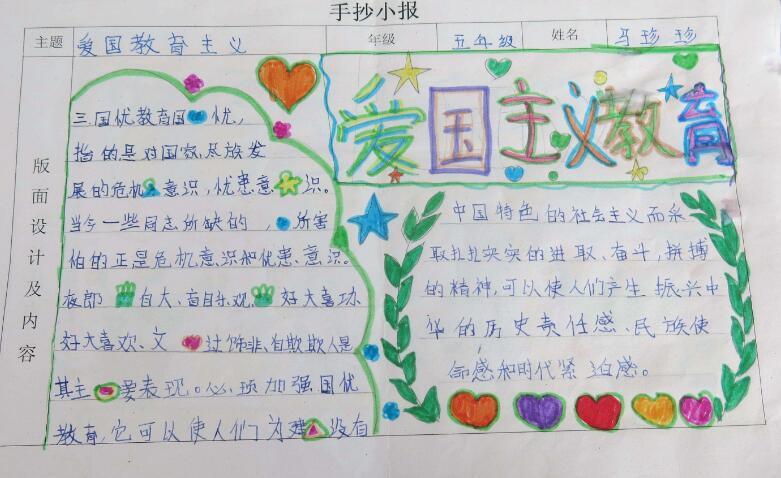 手抄小报
主题 爱国教育主义 年级 五年级 姓名 马珍珍
版面设计及内容
三.国优教育国忧,
指的是对国家及族发
展的危机意识,忧患意识。
当今一些同志所缺的,所害
怕的正是危机意识和优患、意识。
夜郎自大、盲目乐观、好大喜功
好大喜欢、文过饰非、自欺欺人是
其主要表现。必须加强国优
教育,它可以使人们为建没有
爱国主义教育
中国特色的社会主义而采
取扎扎实实的进取、奋斗,拼搏
的精神,可以使人们产生振兴中
华的历史责任感、民族使
命感和时代紧迫感。